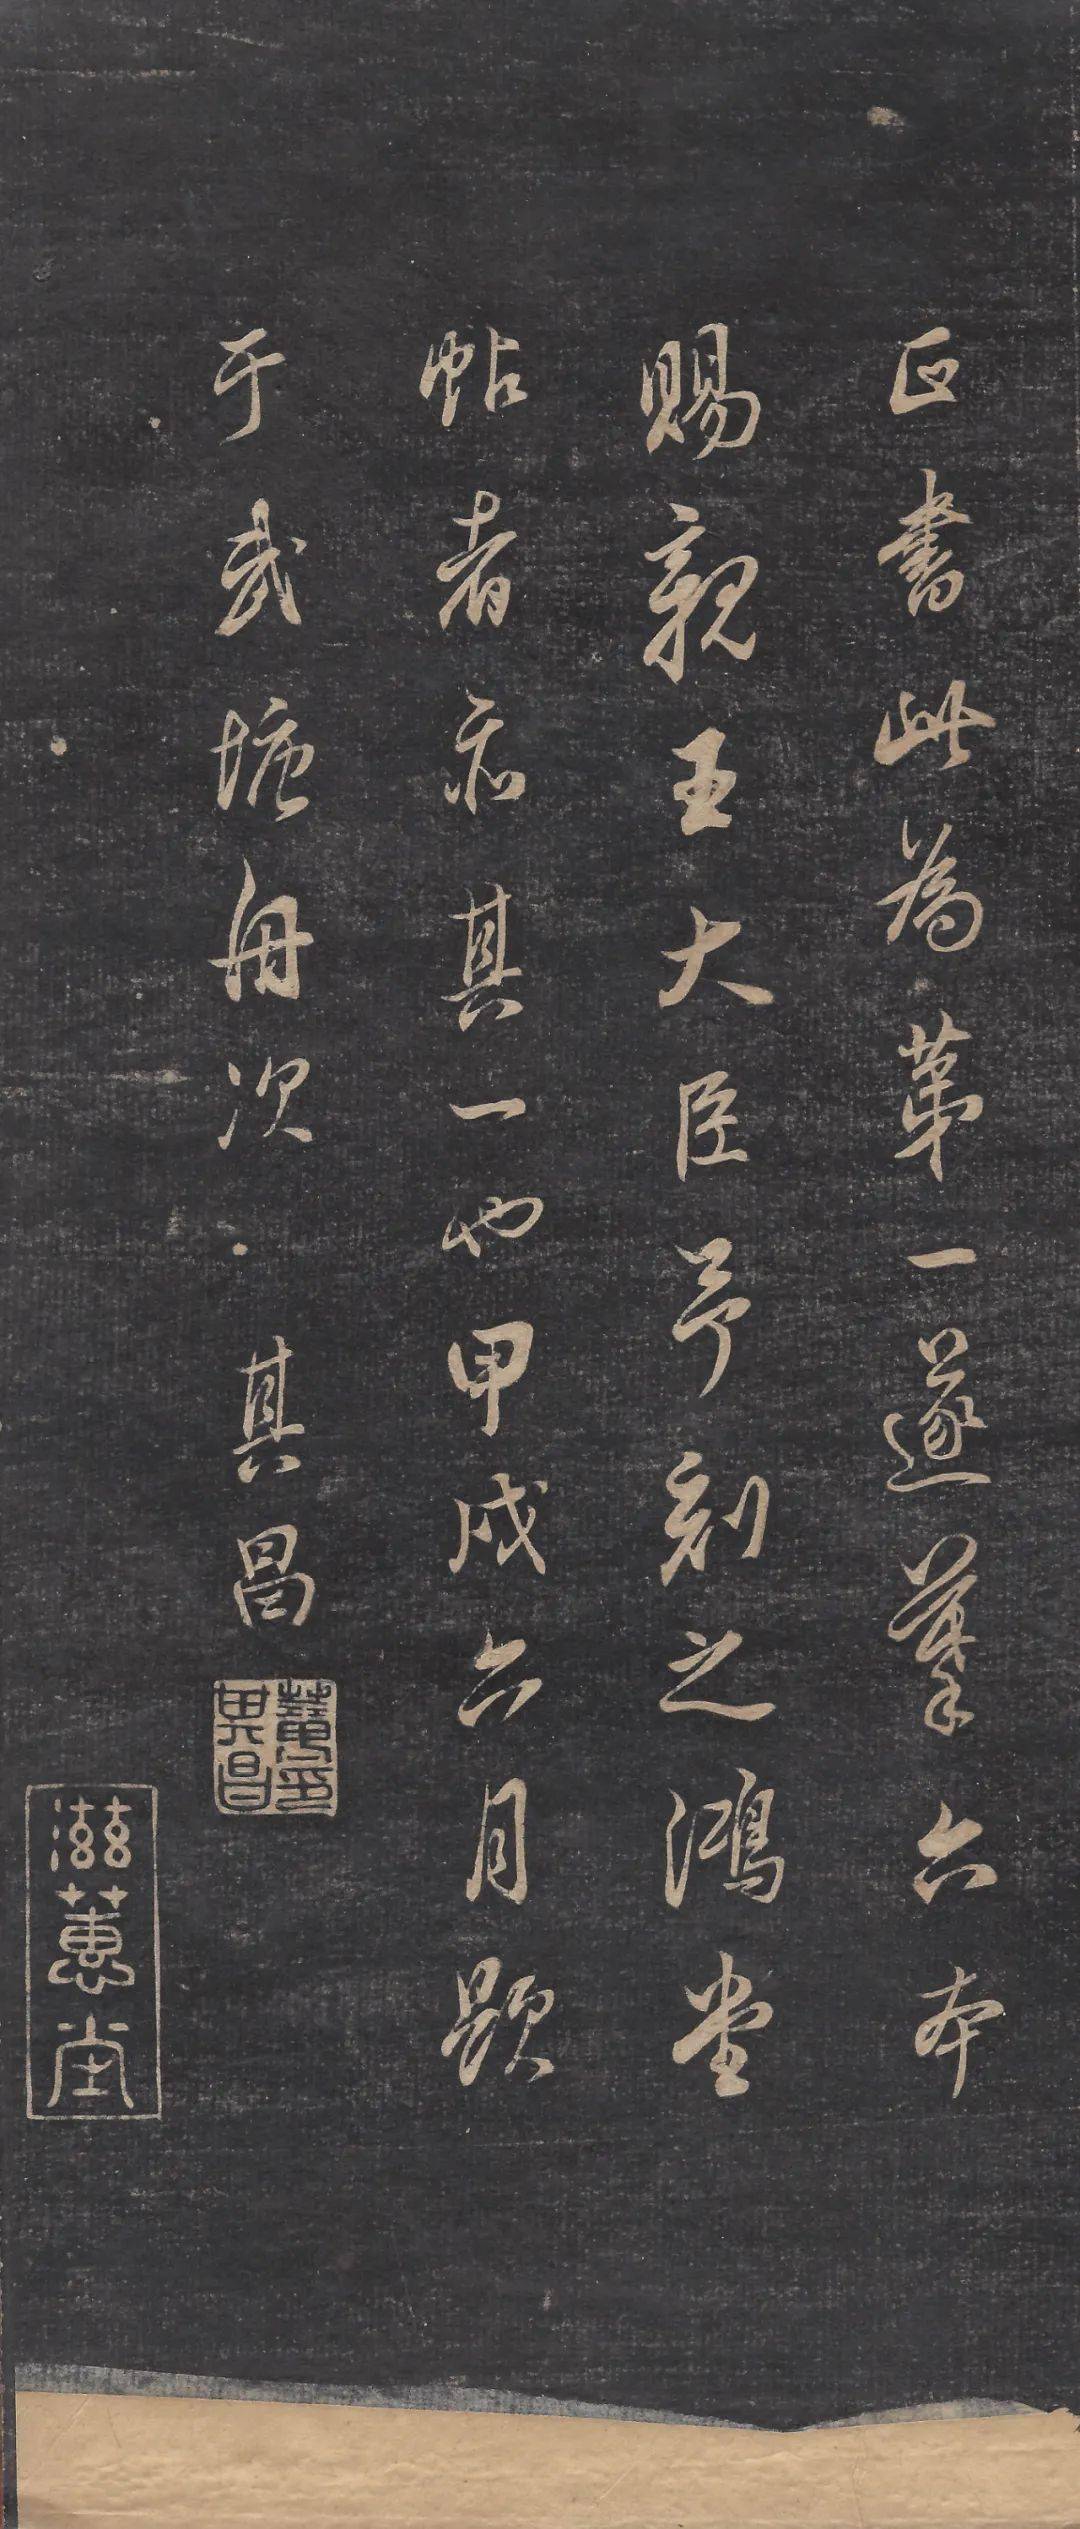 正書此為第一遂摹六本
賜親王大臣予刻之鴻堂
帖者亦其一也甲戌六月題
于武塘舟次 其昌
董其昌印
滋蕙堂